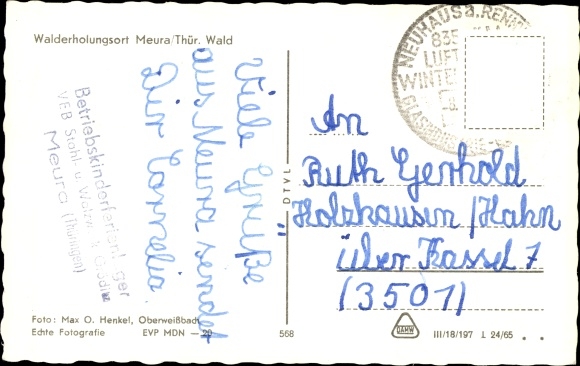 Walderholungsort Meura/Thür. Wald
Viele Grüße
aus Meura sendet
Dir Cornelia.
Betriebskinderferienlager
VEB Stahl- u. Walzwerk
Meura (Thüringen)
NEUHAUS a. RENNW
835
LUFT
WINTER
An
Ruth Gerhold
Holzhausen / Hahn
über Kassel 7
(3501)
DTVL
Foto: Max O. Henkel, Oberweißbach
Echte Fotografie EVP MDN — 20
568
III/18/197 L 24/65